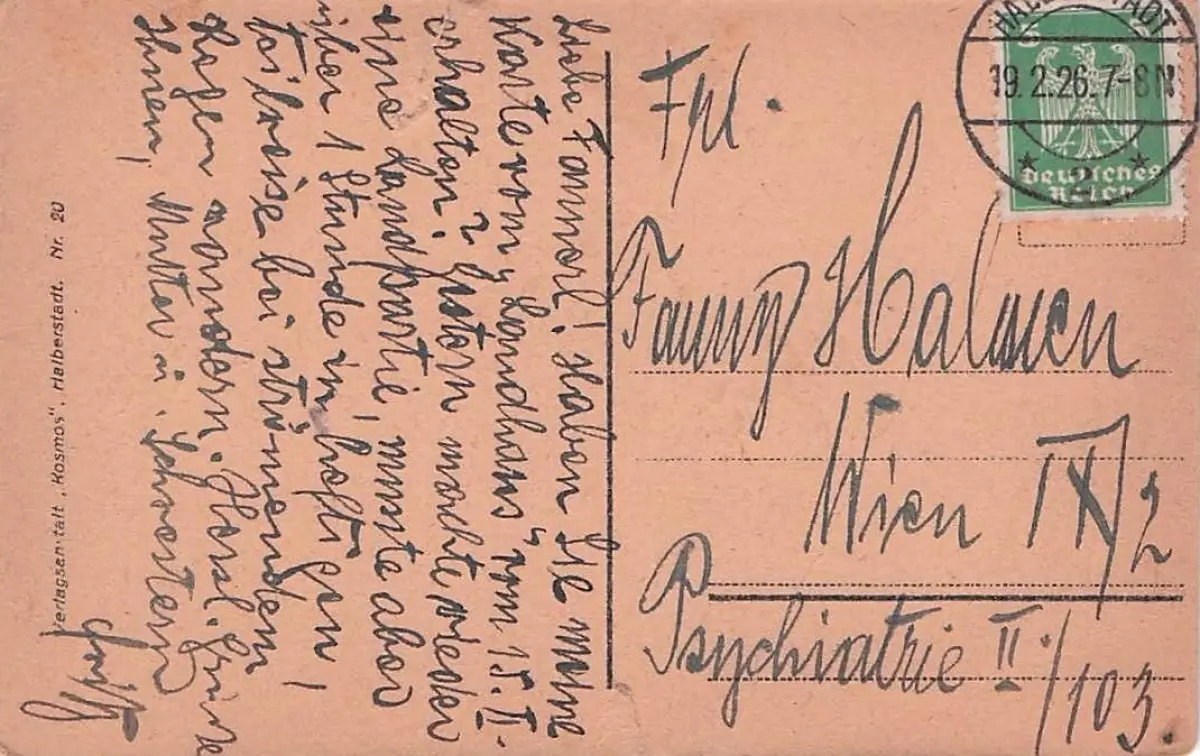 Liebe Fannerl! Haben Sie meine
Karte vom „Landhaus" vom 15. II.
erhalten? Gestern machte wieder
eine Landpartie, musste aber
über 1 Stunde im heftigen,
teilweise bei strömendem
Regen wandern. Herzl. Grüsse
Ihnen, Mutter u. Schwestern
Verlagsanstalt „Kosmos", Halberstadt. Nr. 20
HALBERSTADT
19.2.26.7-8N
* 2 *
5
Deutsches
Reich
Frl.
Fanny Halmen
Wien IX/2
Psychiatrie II./103.